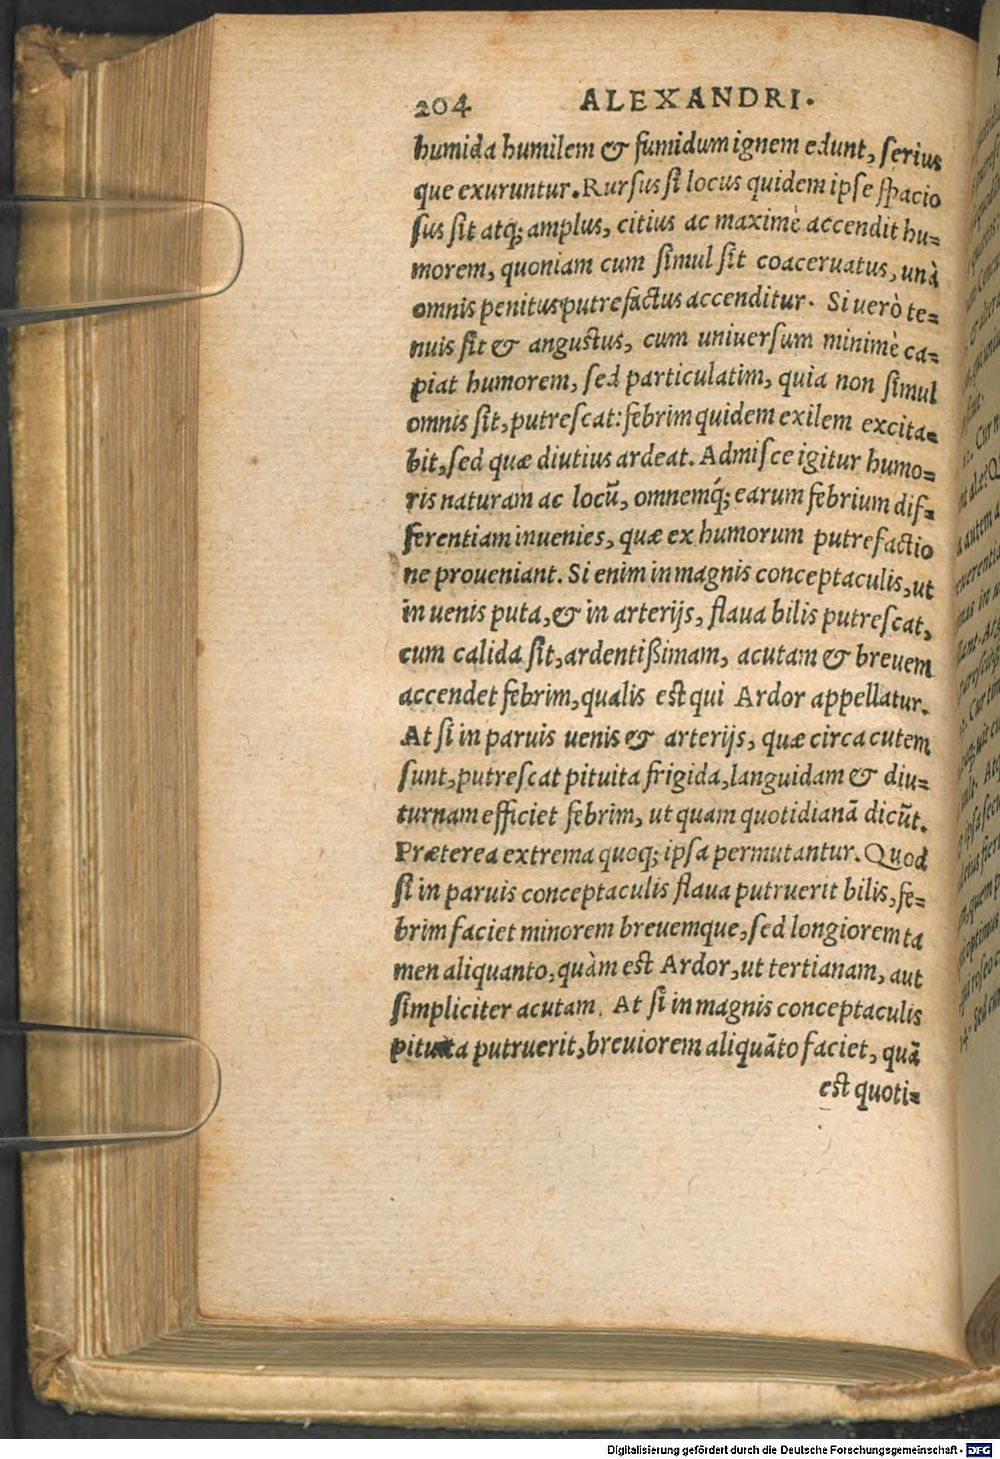 204 ALEXANDRI.
humida humilem & fumidum ignem edunt, ſerius
que exuruntur. Rurſus ſi locus quidem ipſe ſpacio
ſus ſit atq; amplus, citius ac maximè accendit hu=
morem, quoniam cum ſimul ſit coaceruatus, unà
omnis penitus putrefactus accenditur. Si uerò te=
nuis ſit & anguſtus, cum uniuerſum minimè ca=
piat humorem, ſed particulatim, quia non ſimul
omnis ſit, putreſcat: febrim quidem exilem excita=
bit, ſed quæ diutius ardeat. Admiſce igitur humo=
ris naturam ac locũ, omnemq́; earum febrium dif=
ferentiam inuenies, quæ ex humorum putrefactio
ne proueniant. Si enim in magnis conceptaculis, ut
in uenis puta, & in arterijs, flaua bilis putreſcat,
cum calida ſit, ardentißimam, acutam & breuem
accendet febrim, qualis eſt qui Ardor appellatur.
At ſi in paruis uenis & arterijs, quæ circa cutem
ſunt, putreſcat pituita frigida, languidam & diu=
turnam efficiet febrim, ut quam quotidianã dicũt.
Præterea extrema quoq; ipſa permutantur. Quod
ſi in paruis conceptaculis flaua putruerit bilis, fe=
brim faciet minorem breuemque, ſed longiorem ta
men aliquanto, quàm eſt Ardor, ut tertianam, aut
ſimpliciter acutam. At ſi in magnis conceptaculis
pituita putruerit, breuiorem aliquãto faciet, quã
eſt quoti=
Digitalisierung gefördert durch die Deutsche Forschungsgemeinschaft - DFG